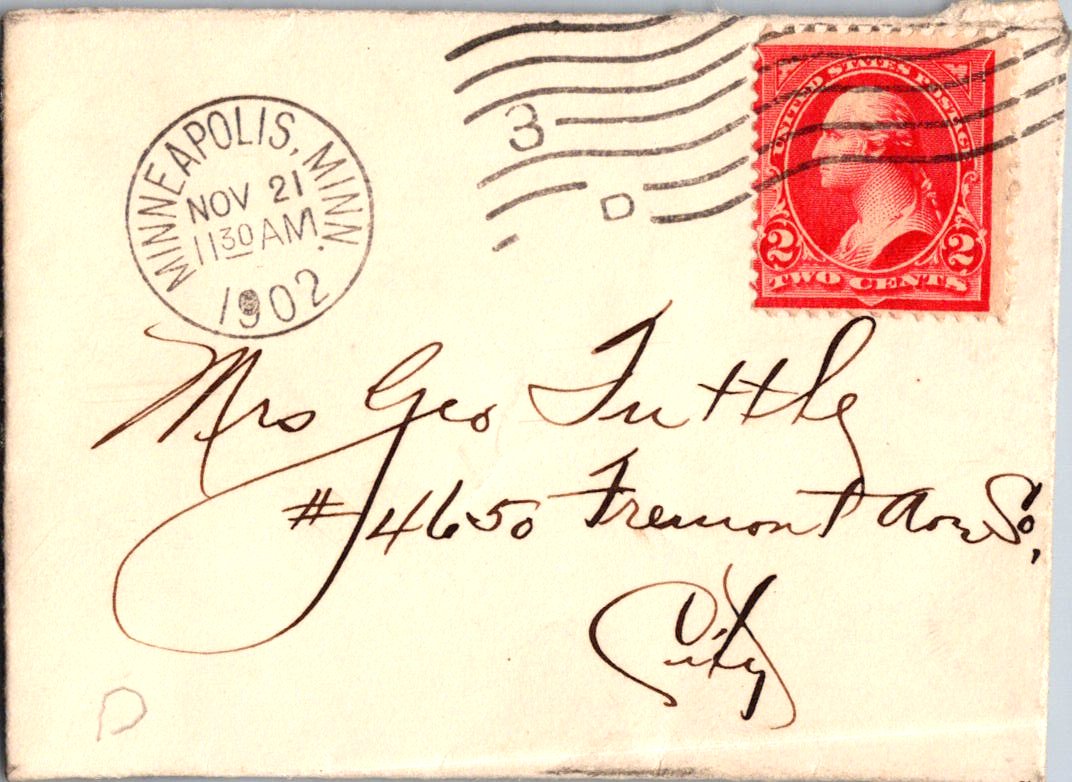 MINNEAPOLIS, MINN.
NOV 21
11 30 AM
1902
3
D
UNITED STATES POSTAGE
2 2
TWO CENTS
Mrs Geo Tuttle
#4650 Fremont Ave So,
City
D